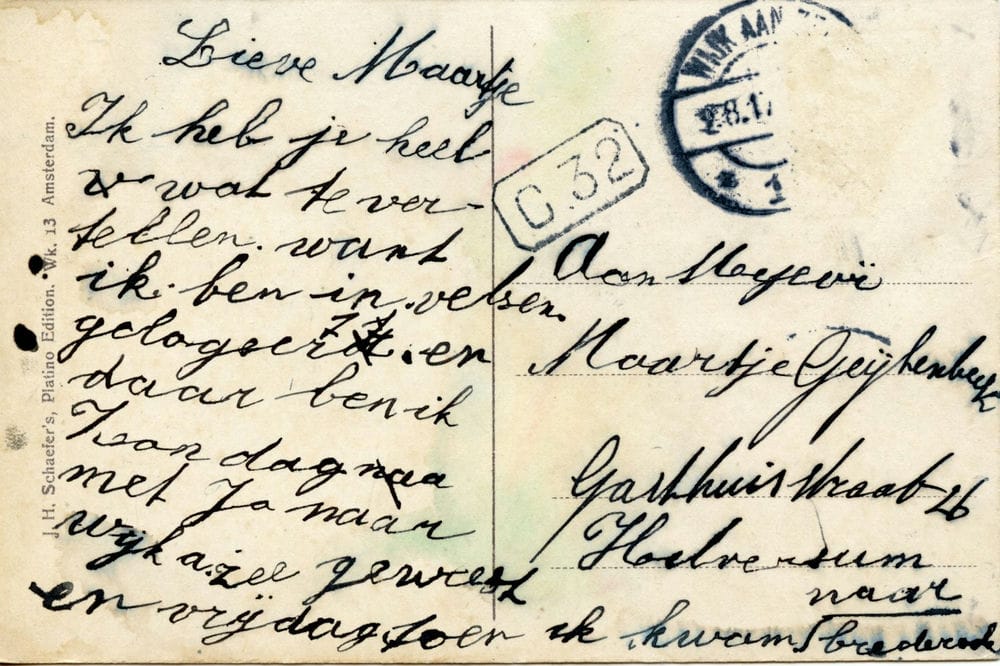 Lieve Maartje
Ik heb je heel
w wat te ver-
tellen. want
ik. ben in velsen.
gelogeerd. en
daar ben ik
Zondag
met Jo naar
wijk a. zee geweest
en vrijdag toen ik kwam
naar
brederode
J. H. Schaefer's, Platino Edition. Wk. 13 Amsterdam.
WIJK AAN ZEE
8.17
1
C 32
Aan Mejevr
Maartje Geijtenbeek
Gasthuisstraat 26
Hilversum